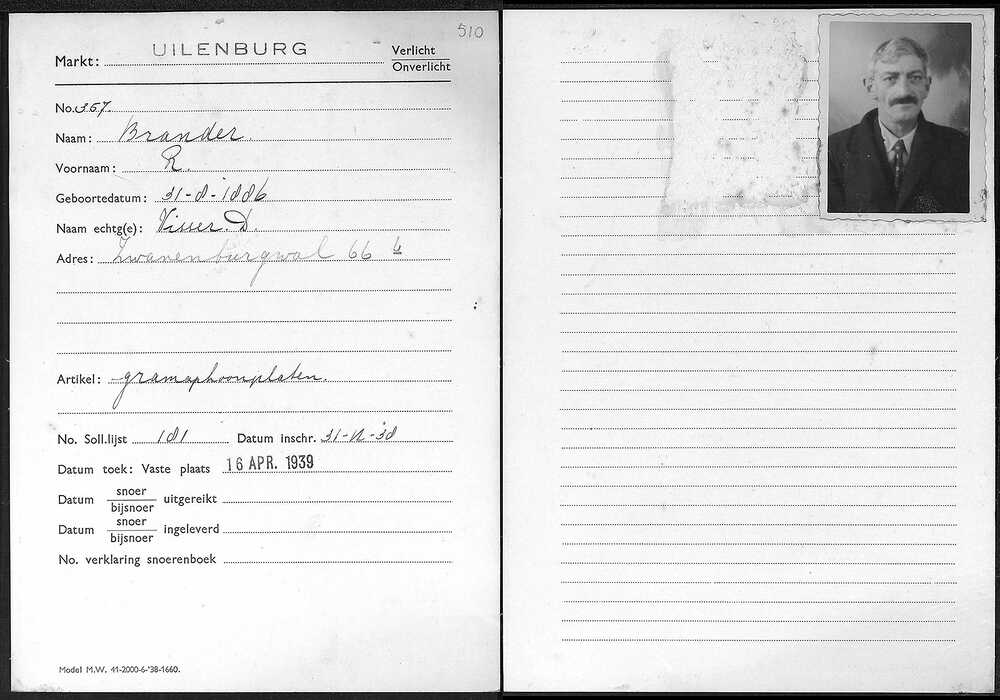 510
Markt: UILENBURG Verlicht
Onverlicht
No. 367.
Naam: Brander.
Voornaam: R.
Geboortedatum: 31-8-1886
Naam echtg(e): Visser. D.
Adres: Zwanenburgwal 66
Artikel: gramaphoonplaten.
No. Soll.lijst 181 Datum inschr. 31-12-38
Datum toek: Vaste plaats 16 APR. 1939
Datum snoer uitgereikt
bijsnoer
Datum snoer ingeleverd
bijsnoer
No. verklaring snoerenboek
Model M.W. 41-2000-6-'38-1660.